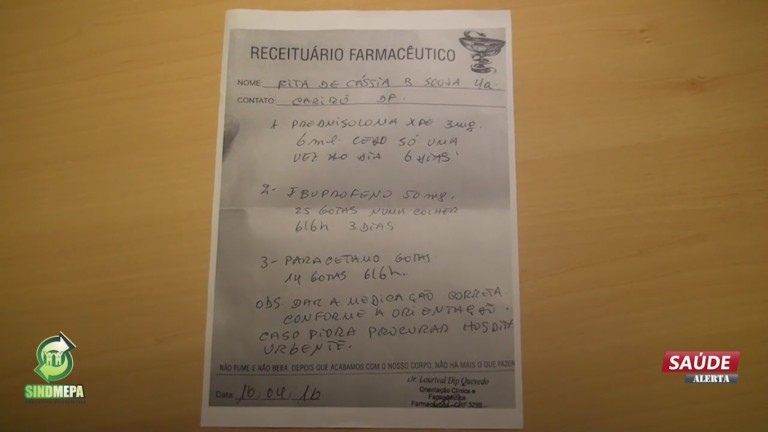 RECEITUÁRIO FARMACÊUTICO
NOME: RITA DE CÁSSIA B SOUZA 4a
CONTATO: CARIRÚ DP.
1 PREDNISOLONA XPE 3mg.
6ml. CEDO SÓ UMA
VEZ AO DIA 6 DIAS
2- IBUPROFENO 50mg.
25 GOTAS NUMA COLHER
6/6h 3 DIAS
3- PARACETAMO GOTAS.
14 GOTAS 6/6h.
OBS DAR A MEDICAÇÃO CORRETA
CONFORME A ORIENTAÇÃO.
CASO PIORA PROCURAR HOSPITA
URGENTE.
NÃO FUME E NÃO BEBA. DEPOIS QUE ACABAMOS COM O NOSSO CORPO, NÃO HÁ MAIS O QUE FAZER
Data: 10.04.16
Dr. Lourival Dip Quevedo
Orientação Clínica e
SINDMEPA
SAÚDE
ALERTA